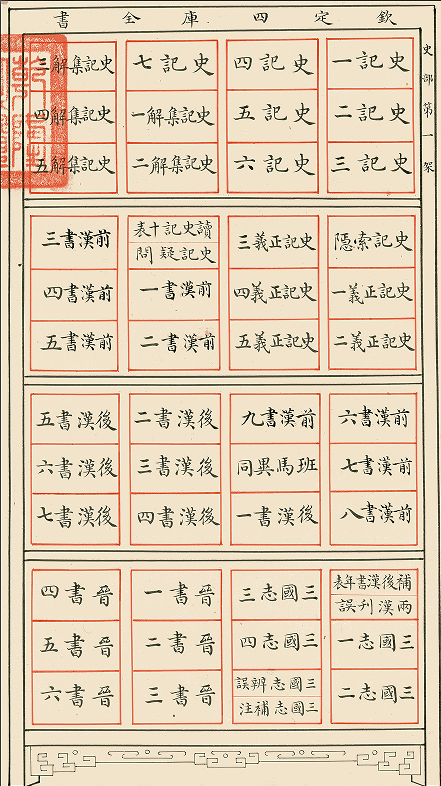 欽定四庫全書
史部第一架
史記一
史記二
史記三
史記四
史記五
史記六
史記七
史記集解一
史記集解二
史記集解三
史記集解四
史記集解五
史記索隱
史記正義一
史記正義二
史記正義三
史記正義四
史記正義五
讀史記十表
史記疑問
前漢書一
前漢書二
前漢書三
前漢書四
前漢書五
前漢書六
前漢書七
前漢書八
前漢書九
班馬異同
後漢書一
後漢書二
後漢書三
後漢書四
後漢書五
後漢書六
後漢書七
補後漢書年表
兩漢刋誤
三國志一
三國志二
三國志三
三國志四
三國志辨誤
三國志補注
晉書一
晉書二
晉書三
晉書四
晉書五
晉書六